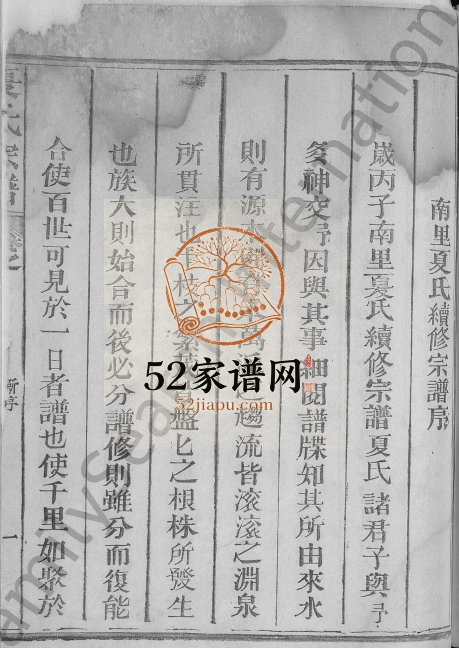 南里夏氏續修宗譜序
歲丙子南里夏氏續修宗譜夏氏諸君子與予
多神交予因與其事細閱譜牒知其所由來水
則有源木 萬 趨流皆滾滾之淵泉
所貫注也千枝之繁 盤匕之根株所發生
也族大則始合而後必分譜修則雖分而復能
合使百世可見於一日者譜也使千里如聚於
夏氏宗譜
新序
一
52家谱网
52jiapu.com
FamilySearch International